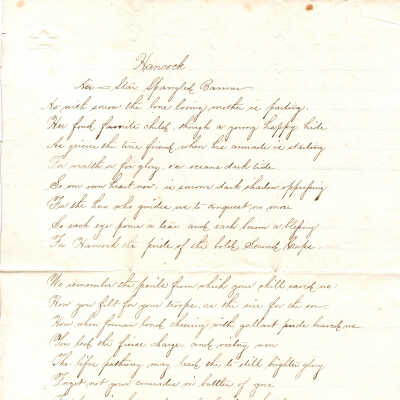 Hancock
Air – Star Spangled Banner
As with sorrow the lone loving mother is parting
Her fond favorite child, though a young happy bride
As grieves the true friend, when his comrade is starting
For wealth or for glory, o'er oceans dark tide
So on our heart now, is sorrows dark shadow oppressing
For the hero who guides us to conquest no more
So each eye pours a tear and each bosom a blessing
For Hancock the pride of the Second Corps.
We remember the perils from which your skill saved us
How you felt for your troops, as the sire for the son
How when foemans cheering with gallant pride braved us
You led the fierce charge, and victory won
Tho lifes pathway may lead thee to still brighter glory
Forget not your comrades in battles of yore